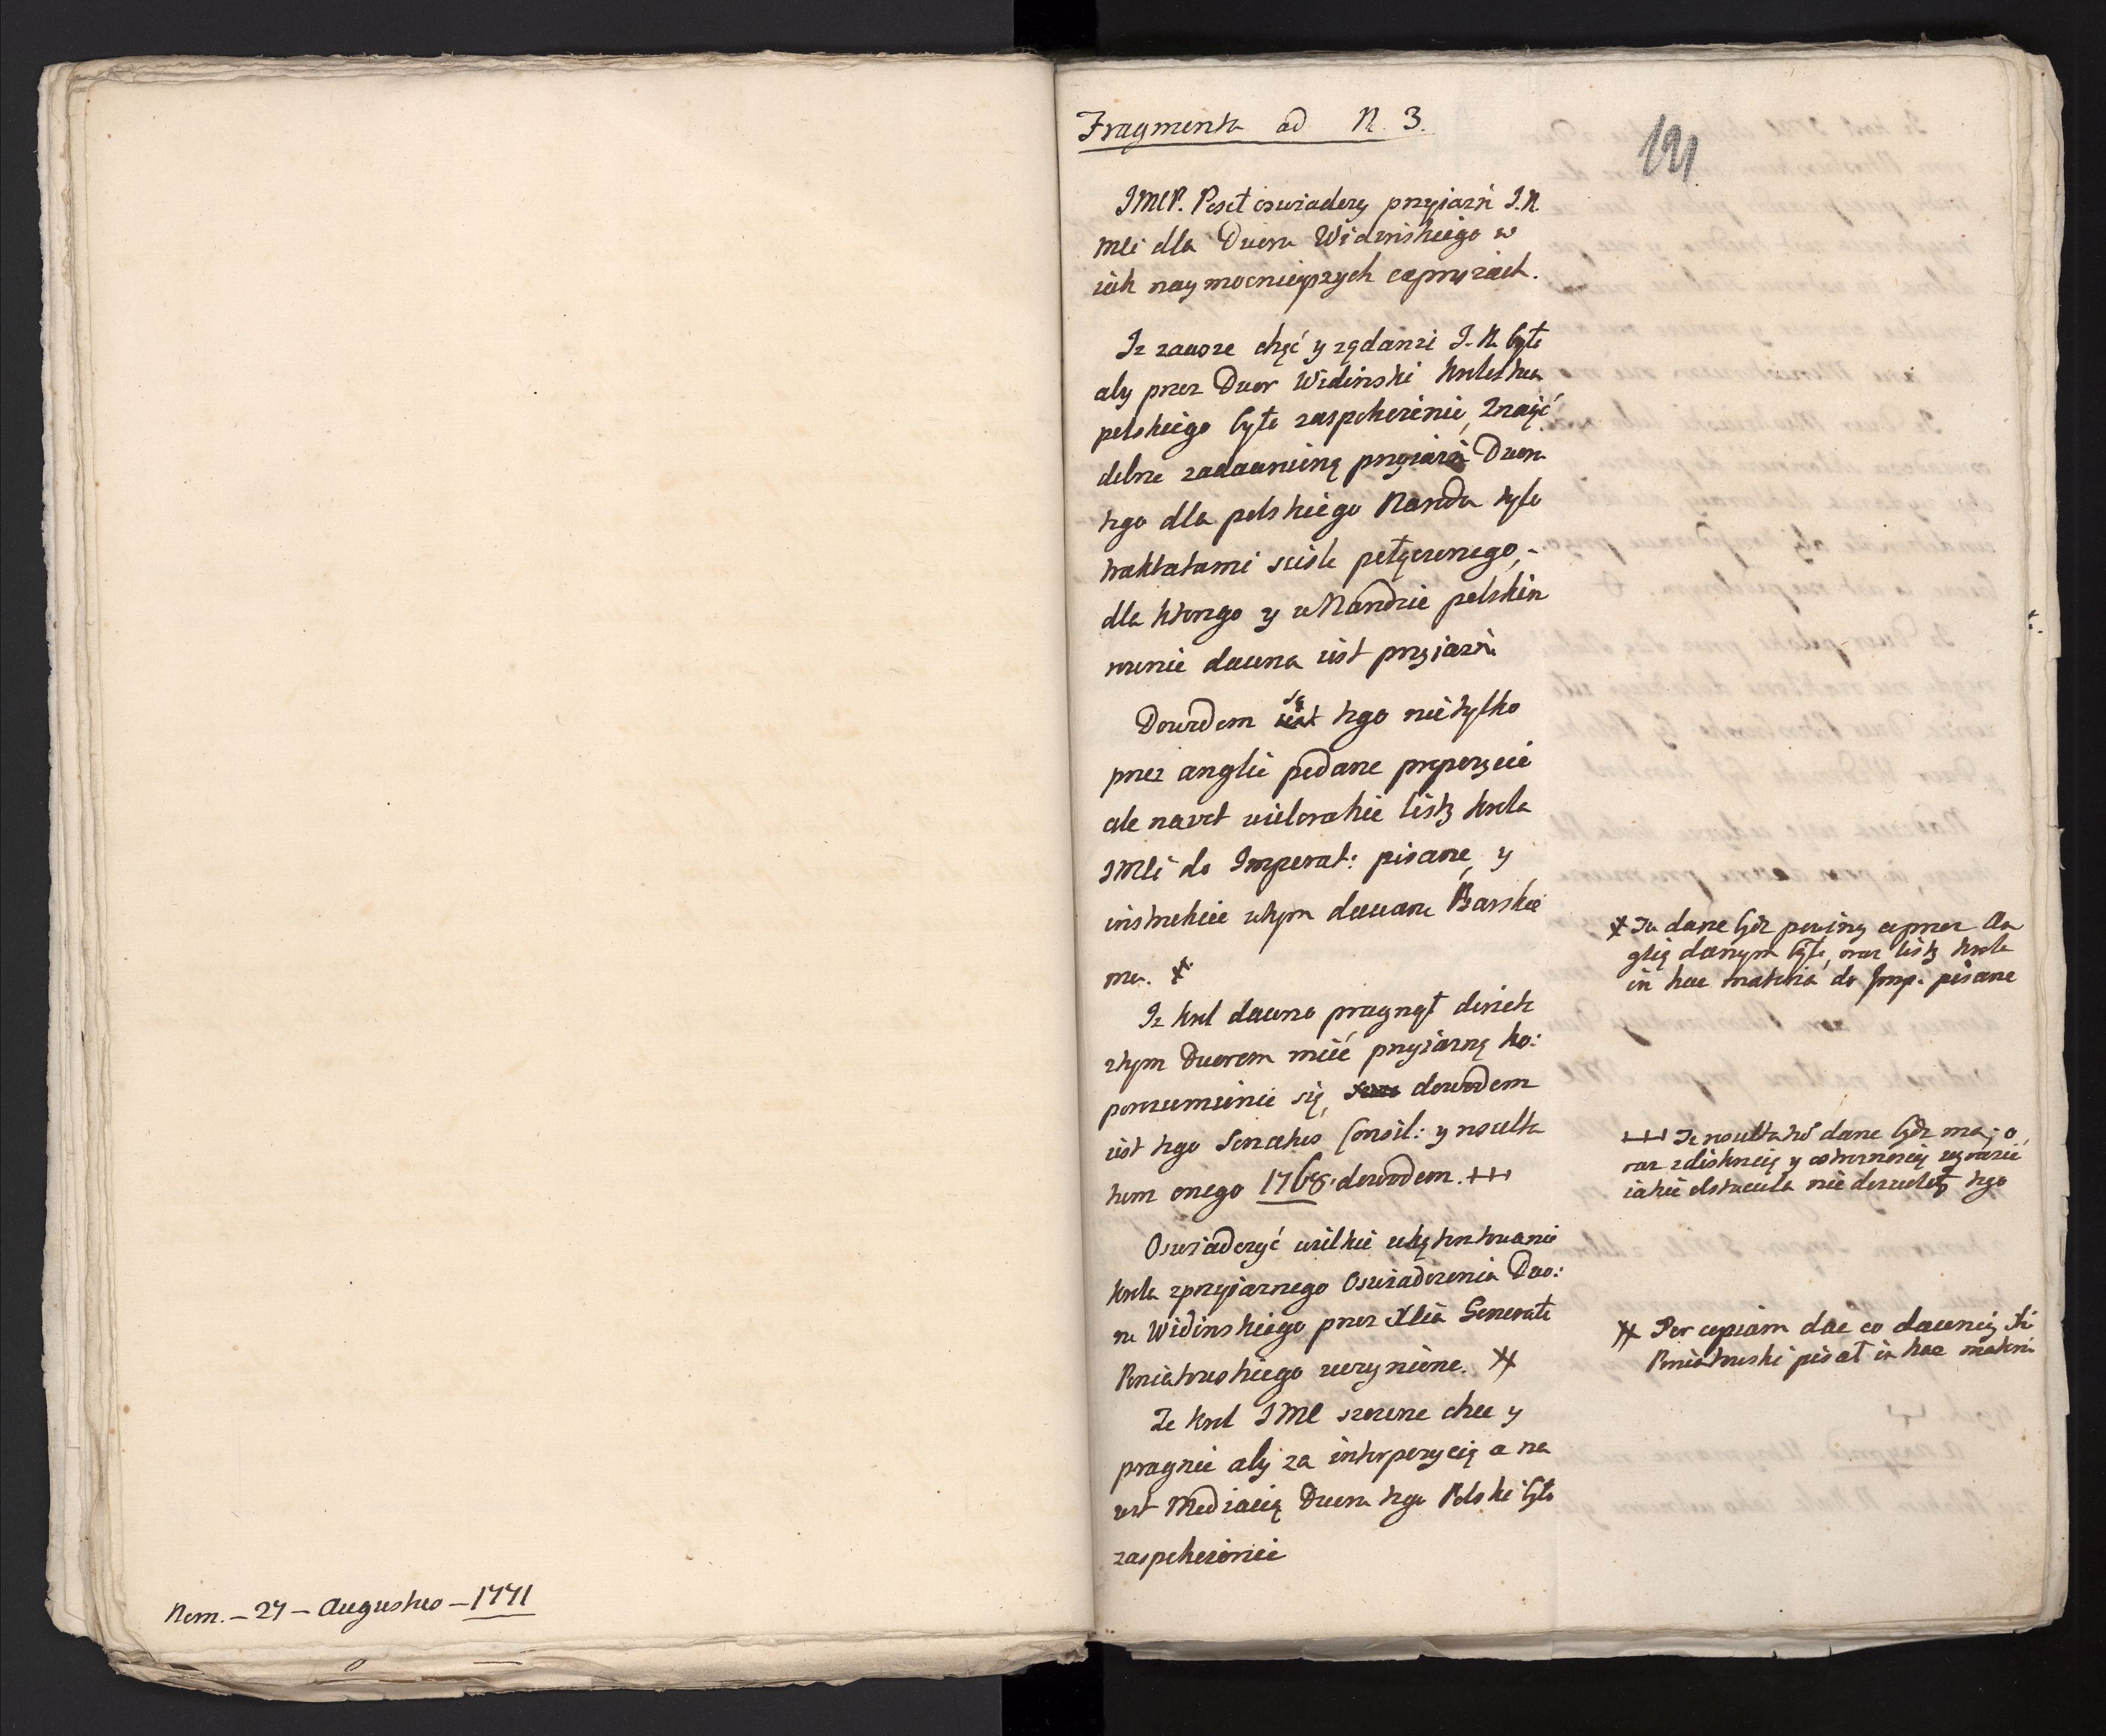 Nom. – 27 – Augustus – 1771
Fragmenta ad N. 3.
191
JMCP. Poseł oswiadczy przyiazń J.K.
Mci dla Dworu Widenskiego w
iak naymocnieyszych expressiach.
Iz zawsze chęć y ządanie J.K. było
aby przez Dwor Wiedenski Krolestwa
polskiego było zaspokoienie, znaiąć
dobrze zadawnioną przyiazń Dworu
tego dla polskiego Narodu tylo
traktatami scisle połączonego,
dla ktorego y w Narodzie polskim
rownie dawna iest przyiazń
Dowodem są tego nie tylko
przez anglie podane propozycie
ale nawet wielorakie listy Krola
JMci do Imperat: pisane, y
instrukcie w tym dawane Barskie
mu. ⨳
Iz Krol dawno pragnął direkte
z tym Dworem mieć przyiazną ko:
porozumienie się, dowodem
iest tego Senatus Consil: y rezulta
tum onego 1768. dowodem. +++
Oswiadczyć wielkie ukątentowanie
Krola z przyiaznego Oswiadczenia Dwo:
ru Widinskiego przez Xcia Generała
Poniatowskiego uczynione. ⨳
Ze Krol JMC szczerze chce y
pragnie aby za interpozycią a na
wet Mediacią Dworu tego Polski było
zaspokoienie
⨳ Tu dane bydz powinny co przez An
glią danym było, oraz listy Krola
in hac materia do Imp. pisane
+++ Te rezultatà dane bydz maią o
raz z diskrecią y ostroznoscią wyrazic
iakie obstacula nie dozwoliły tego
⨳ Per copiam dac co dawniey Xi
Poniatowski pisał in hac materia